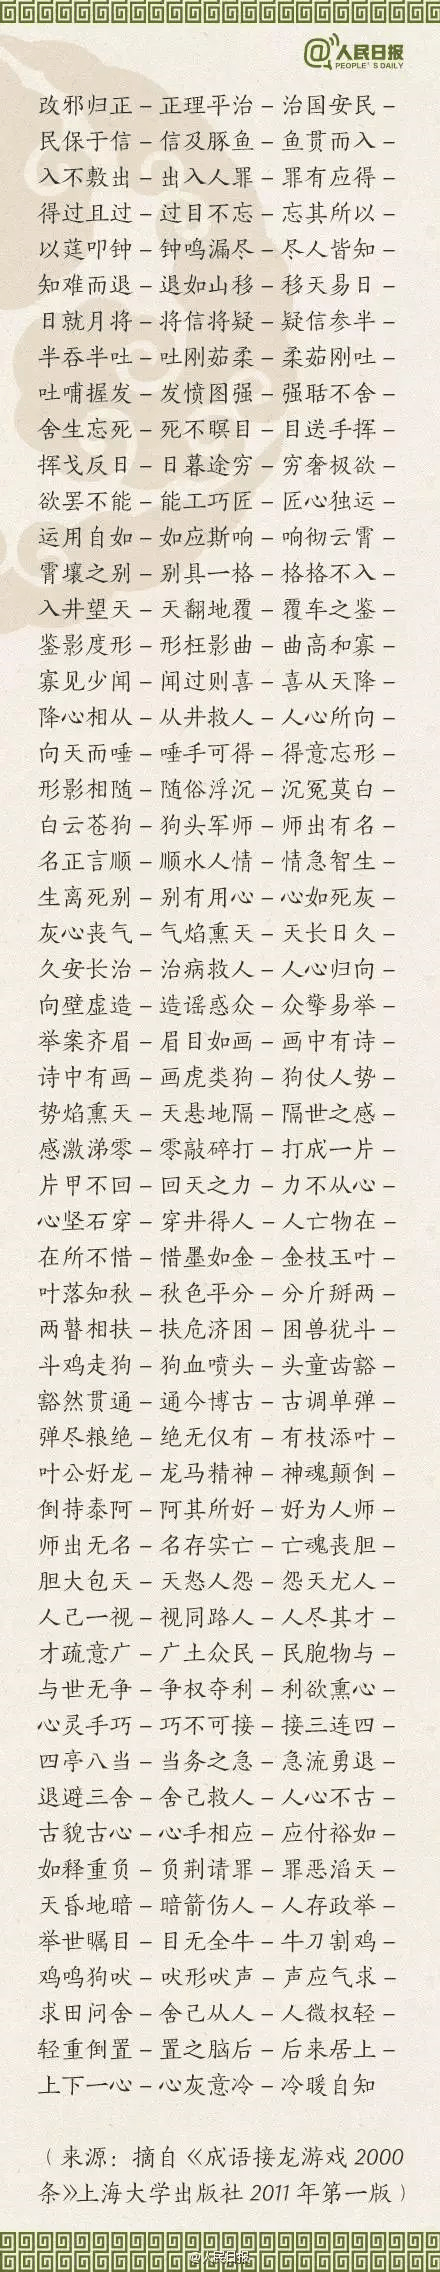 @人民日报
PEOPLE'S DAILY
改邪归正－正理平治－治国安民－
民保于信－信及豚鱼－鱼贯而入－
入不敷出－出入人罪－罪有应得－
得过且过－过目不忘－忘其所以－
以莛叩钟－钟鸣漏尽－尽人皆知－
知难而退－退如山移－移天易日－
日就月将－将信将疑－疑信参半－
半吞半吐－吐刚茹柔－柔茹刚吐－
吐哺握发－发愤图强－强聒不舍－
舍生忘死－死不瞑目－目送手挥－
挥戈反日－日暮途穷－穷奢极欲－
欲罢不能－能工巧匠－匠心独运－
运用自如－如应斯响－响彻云霄－
霄壤之别－别具一格－格格不入－
入井望天－天翻地覆－覆车之鉴－
鉴影度形－形枉影曲－曲高和寡－
寡见少闻－闻过则喜－喜从天降－
降心相从－从井救人－人心所向－
向天而唾－唾手可得－得意忘形－
形影相随－随俗浮沉－沉冤莫白－
白云苍狗－狗头军师－师出有名－
名正言顺－顺水人情－情急智生－
生离死别－别有用心－心如死灰－
灰心丧气－气焰熏天－天长日久－
久安长治－治病救人－人心归向－
向壁虚造－造谣惑众－众擎易举－
举案齐眉－眉目如画－画中有诗－
诗中有画－画虎类狗－狗仗人势－
势焰熏天－天悬地隔－隔世之感－
感激涕零－零敲碎打－打成一片－
片甲不回－回天之力－力不从心－
心坚石穿－穿井得人－人亡物在－
在所不惜－惜墨如金－金枝玉叶－
叶落知秋－秋色平分－分斤掰两－
两瞽相扶－扶危济困－困兽犹斗－
斗鸡走狗－狗血喷头－头童齿豁－
豁然贯通－通今博古－古调单弹－
弹尽粮绝－绝无仅有－有枝添叶－
叶公好龙－龙马精神－神魂颠倒－
倒持泰阿－阿其所好－好为人师－
师出无名－名存实亡－亡魂丧胆－
胆大包天－天怒人怨－怨天尤人－
人己一视－视同路人－人尽其才－
才疏意广－广土众民－民胞物与－
与世无争－争权夺利－利欲熏心－
心灵手巧－巧不可接－接三连四－
四亭八当－当务之急－急流勇退－
退避三舍－舍己救人－人心不古－
古貌古心－心手相应－应付裕如－
如释重负－负荆请罪－罪恶滔天－
天昏地暗－暗箭伤人－人存政举－
举世瞩目－目无全牛－牛刀割鸡－
鸡鸣狗吠－吠形吠声－声应气求－
求田问舍－舍己从人－人微权轻－
轻重倒置－置之脑后－后来居上－
上下一心－心灰意冷－冷暖自知
（来源：摘自《成语接龙游戏 2000
条》上海大学出版社 2011 年第一版）
@人民日报